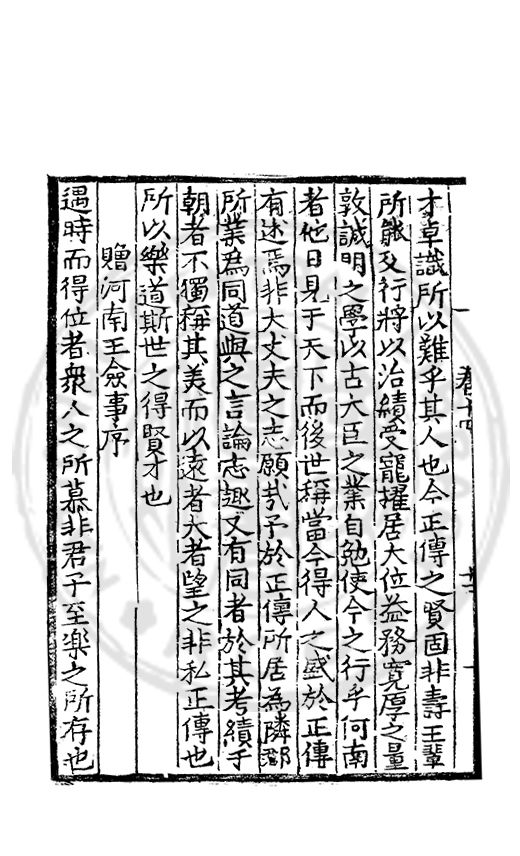 才卓識所以難乎其人也今正傳之賢固非壽王輩
所能及行將以治績受寵擢居大位益務寛厚之量
敦誠明之學以古大臣之業自勉使今之行乎何南
者他日見于天下而後世稱當今得人之盛於正傳
有述焉非大丈夫之志願㢤予於正傳所居為隣郡
所業為同道與之言論志趣又有同者於其考績于
朝者不獨稱其美而以遠者大者望之非私正傳也
所以樂道斯世之得賢才也
贈河南王僉事序
遇時而得位者衆人之所慕非君子至楽之所存也
卷十四